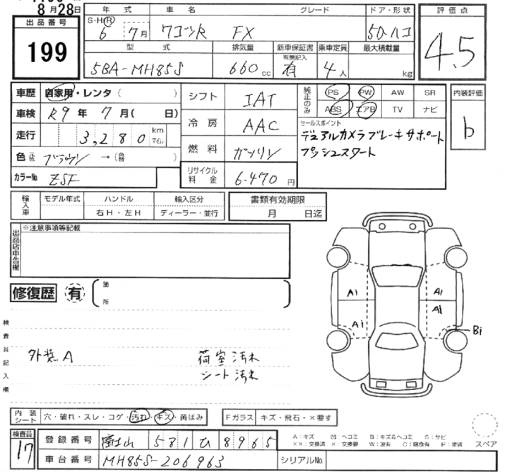 8月28日
出品番号
199
年式 車名 グレード ドア・形状
S・H・R
6年 7月 ワゴンR FX 5D・ハコ
型式 排気量 新車保証書 乗車定員 最大積載量
有無記入
5BA-MH85S 660cc 有 4人 kg
評価点
4.5
車歴 自家用・レンタ
車検 R9年7月( 日)
走行 3,280 km
色 ブラウン
カラーNo ZSF
シフト IAT
冷房 AAC
燃料 ガソリン
リサイクル料金 6,470円
純正のみ PS PW AW SR
ABS エアB TV ナビ
セールスポイント
デュアルカメラブレーキサポート
プッシュスタート
内装評価
b
輸入車 モデル年式 ハンドル 輸入区分
右H・左H ディーラー・並行
書類有効期限
月 日迄
出品店申告欄
※注意事項等記載
修復歴 有 箇所
検査員記入欄
外装A
荷室汚れ
シート汚れ
A1 A1
A1 A1
B1
内装シート 穴・破れ・スレ・コゲ・汚れ・キズ・荷ばみ
Fガラス キズ・飛石・×要す
スペア
検査員
17
登録番号 富士山 581 ひ 8965
車台番号 MH85S-206963
シリアルNo